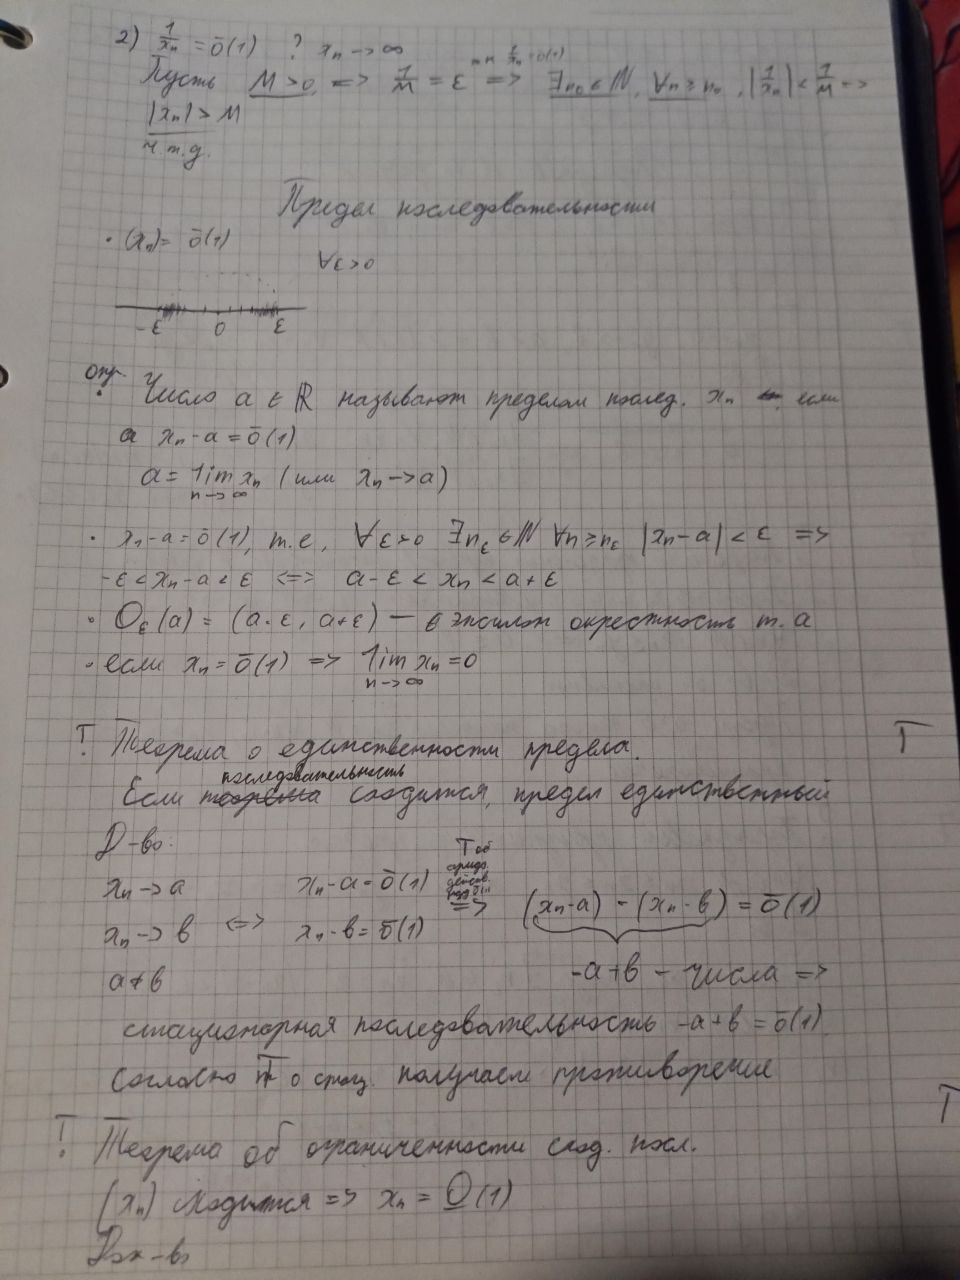 2) 1/xₙ = ō(1) ? xₙ → ∞
Пусть M > 0 => 1/M = ε => ∃n₀ ∈ ℕ, ∀n ≥ n₀, |1/xₙ| < 1/M =>
|xₙ| > M
ч.т.д.
Предел последовательности
· (xₙ) = ō(1)
∀ε>0
-ε 0 ε
опр.
· Число a ∈ ℝ называют пределом послед. xₙ если
a xₙ-a = ō(1)
a = lim xₙ (или xₙ -> a)
n -> ∞
· xₙ-a = ō(1), т.е. ∀ε>0 ∃n_ε ∈ ℕ ∀n ≥ n_ε |xₙ-a| < ε =>
-ε < xₙ-a < ε <=> a-ε < xₙ < a+ε
· O_ε(a) = (a-ε, a+ε) — эпсилон окрестность т. a
· если xₙ = ō(1) => lim xₙ = 0
n -> ∞
T! Теорема о единственности предела. T
последовательность
Если теорема сходится, предел единственный
Д-во:
T об
арифм.
действ.
над ō(1)
xₙ -> a xₙ-a = ō(1) => (xₙ-a) - (xₙ-b) = ō(1)
xₙ -> b <=> xₙ-b = ō(1)
a ≠ b -a+b - числа =>
стационарная последовательность -a+b = ō(1)
Согласно T о стац. получаем противоречие
T! Теорема об ограниченности сход. посл. T
(xₙ) сходится => xₙ = O(1)
Док-во